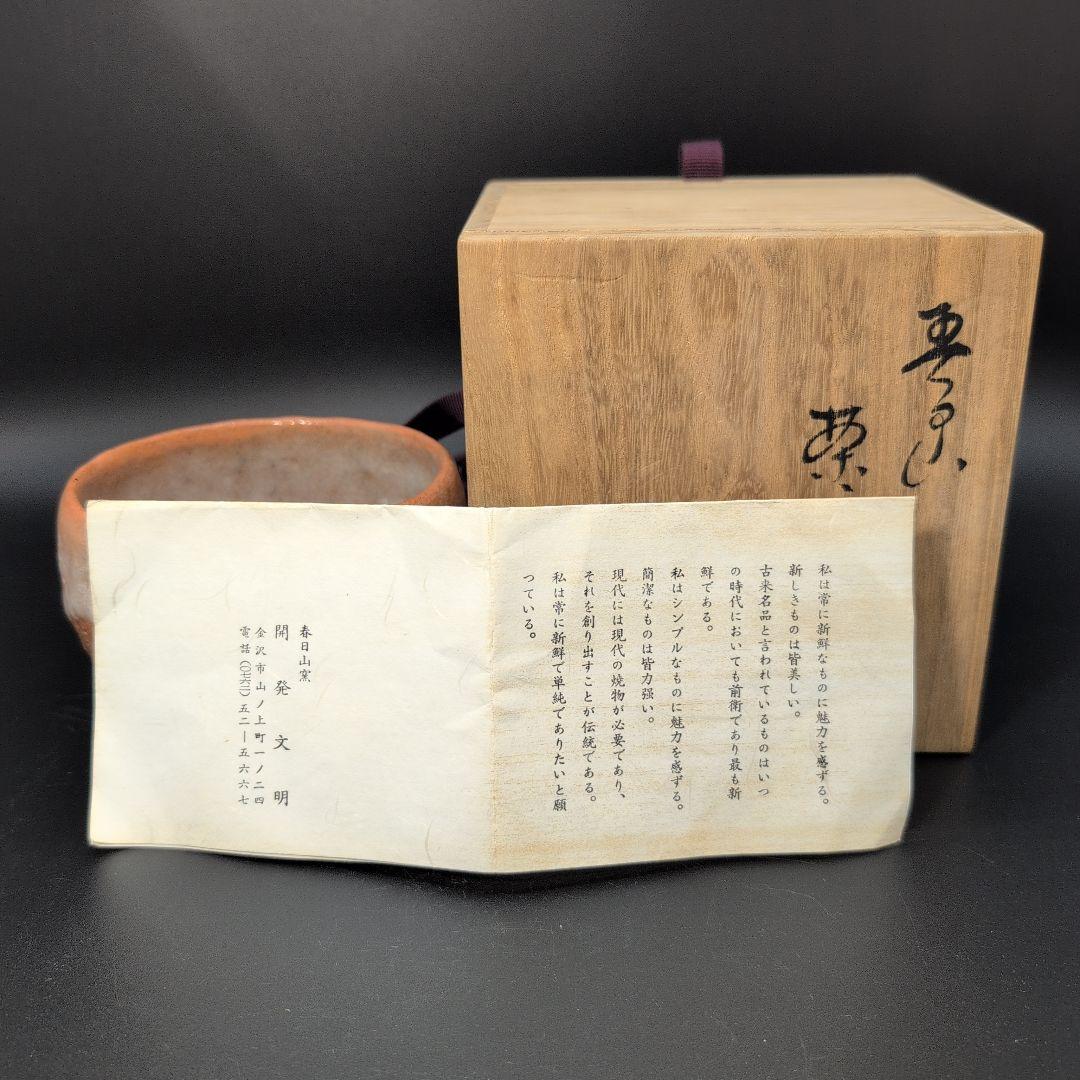 春日山
茶
私は常に新鮮なものに魅力を感ずる。
新しきものは皆美しい。
古来名品と言われているものはいつ
の時代においても前衛であり最も新
鮮である。
私はシンプルなものに魅力を感ずる。
簡潔なものは皆力强い。
現代には現代の焼物が必要であり、
それを創り出すことが伝統である。
私は常に新鮮で単純でありたいと願
つている。
春日山窯
開発文明
金沢市山ノ上町一ノ二四
電話(〇七六二)五二―五六六七